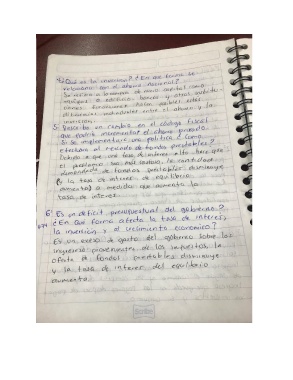 4. ¿Qué es la inversión? ¿En que forma se
relaciona con el ahorro nacional?
Se refiere a la compra de nuevo capital como
equipo o edificios, bancos y otras instit-
uciones financieras hacen posible estas
el ahorro y la
inversión.
5. Describa un cambio en el código fiscal
que podría incrementar el ahorro privado.
Si se implementara una política ¿como
afectaría al mercado de fondos prestables?
Debido a que una tasa de interes alta hace que
el prestamo sea mas costoso, la cantidad
demandada de fondos prestables disminuye
(si la tasa de interes de equilibrio
aumenta) a medida que aumenta la
tasa de interes.
6. ¿Es deficit presupuestal del gobierno?
¿En que forma afecta la tasa de interes,
la inversión y el crecimiento economico?
Es un exceso de gasto del gobierno sobre los
ingresos provenientes de los impuestos, la
oferta de fondos prestables disminuye
y la tasa de interes del equilibrio
aumenta.